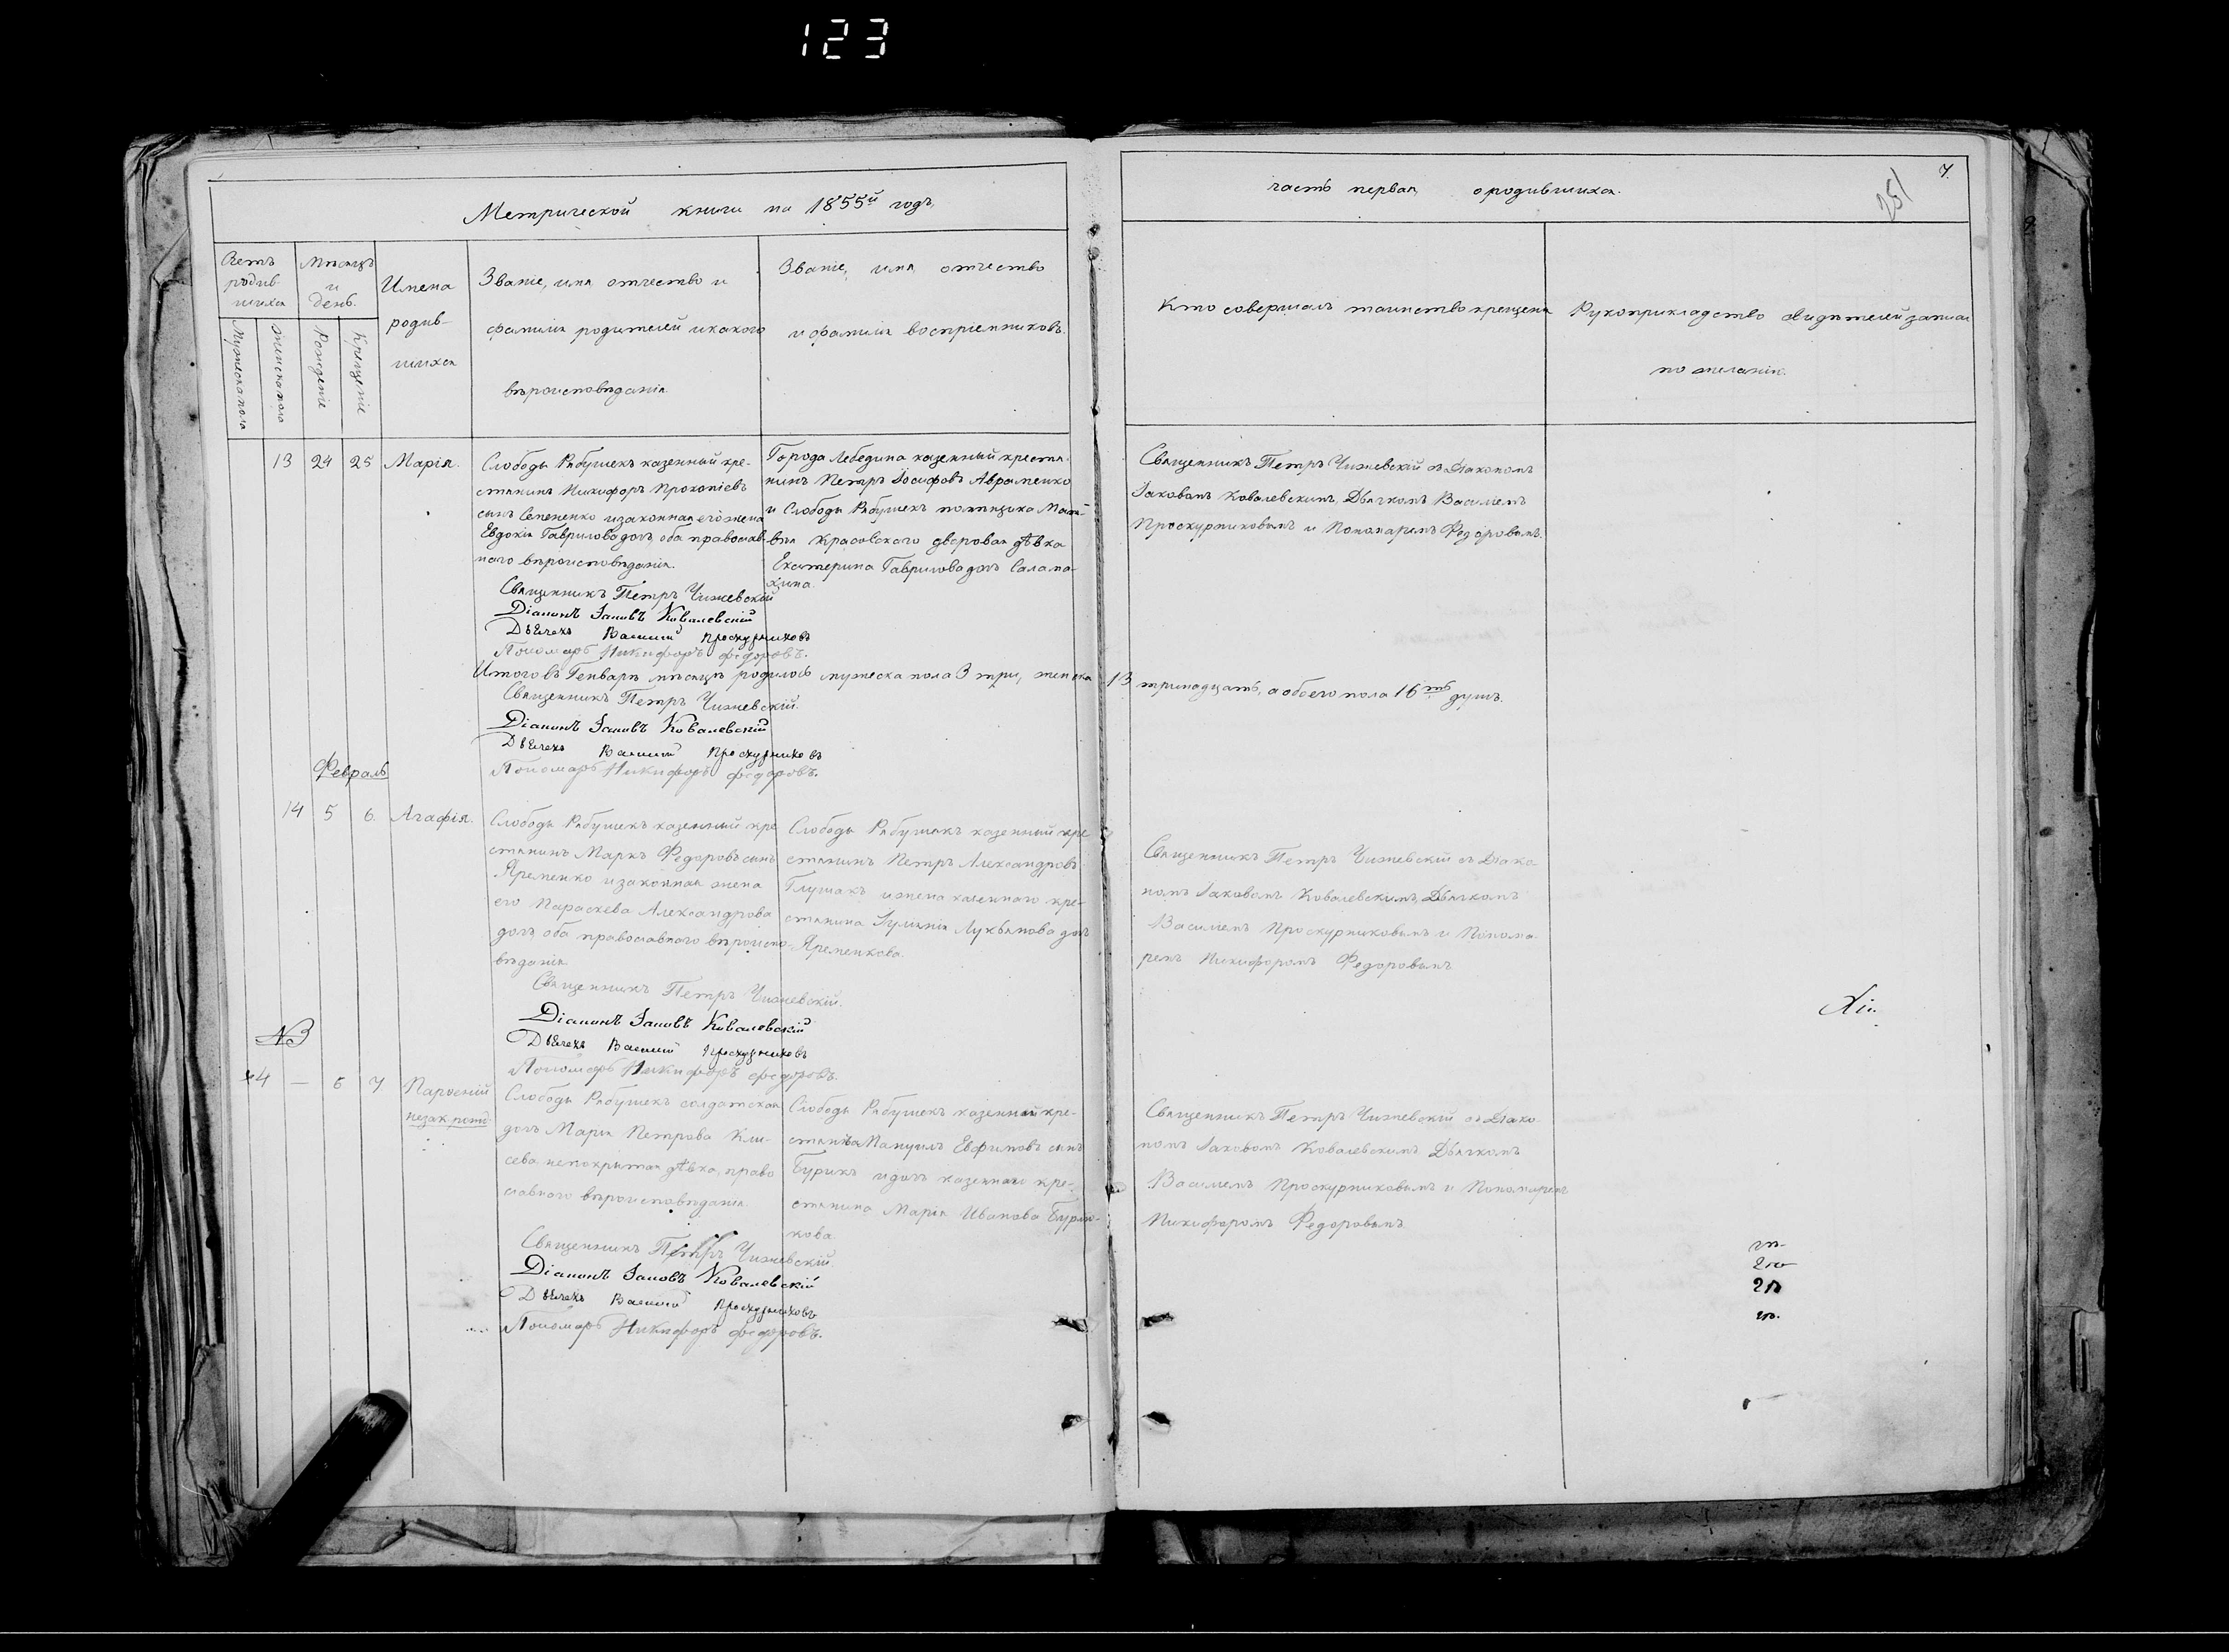 123
Метрической книги на 1855й годъ,
часть первая о родившихся.
7.
251
Счетъ родив-
шихся
Мѣсяцъ
и
день.
Мужеска пола
Женска пола
Рожденіе
Крещеніе
Имена
родив-
шихся
Званіе, имя отчество и
фамилія родителей и какого
вѣроисповѣданія
Званіе, имя, отчество
и фамилія воспріемниковъ.
Кто совершалъ таинство крещенія
Рукоприкладство свидѣтелей записи
по желанію.
13 24 25 Марія.
Слободы Рябушекъ казенный кре-
стянинъ Никифоръ Прокопіевъ
сынъ Семененко и законная его жена
Евдокія Гаврилова дочь, оба православ-
наго вѣроисповѣданія.
Священникъ Петръ Чижевскій
Діаконъ Іаковъ Ковалевскій
Дьячекъ Василий Проскурниковъ
Пономарь Никифоръ Федоровъ.
Города Лебедина казенный крестя-
нинъ Петръ Іосифовъ Авраменко
и Слободы Рябушекъ помѣщика Мат-
вѣя Красовского дворовая дѣвка
Екатерина Гаврилова дочь Салама-
хина.
Священникъ Петръ Чижевскій съ Діакономъ
Іаковомъ Ковалевскимъ, Дьячкомъ Василіемъ
Проскурниковымъ и Пономаремъ Федоровымъ.
Итого въ Генварѣ мѣсяцѣ родилось мужеска пола 3 три, женска 13 тринадцать, а обоего пола 16ть душъ.
Священникъ Петръ Чижевскій.
Діаконъ Іаковъ Ковалевскій
Дьячекъ Василий Проскурниковъ
Пономарь Никифоръ Федоровъ.
Февраль
14 5 6. Агафія.
Слободы Рябушекъ казенный кре
стянинъ Маркъ Федоровъ сынъ
Яременко и законная жена
его Параскева Александрова
дочь, оба православнаго вѣроиспо-
вѣданія
Священникъ Петръ Чижевскій.
Діаконъ Іаковъ Ковалевскій
Дьячекъ Василий Проскурниковъ
Пономарь Никифоръ Федоровъ.
Слободы Рябушекъ казенный кре
стянинъ Петръ Александровъ
Глушакъ и жена казеннаго кре-
стянина Іулянія Лукьянова дочь
Яременкова.
Священникъ Петръ Чижевскій съ Діако
номъ Іаковомъ Ковалевскимъ, Дьячкомъ
Василіемъ Проскурниковымъ и Понома-
ремъ Никифоромъ Федоровымъ
NB
4 — 6 7 Парфеній
незак. рожд.
Слободы Рябушекъ солдатская
дочь Марія Петрова Кли-
сева непокрытая дѣвка, право
славнаго вѣроисповѣданія.
Священникъ Петръ Чижевскій.
Діаконъ Іаковъ Ковалевскій
Дьячекъ Василий Проскурниковъ
Пономарь Никифоръ Федоровъ.
Слободы Рябушекъ казенный кре-
стянинъ Мануилъ Евфимовъ сынъ
Бурикъ и дочь казеннаго кре-
стянина Марія Иванова Бури-
кова
Священникъ Петръ Чижевскій съ Діако-
номъ Іаковомъ Ковалевскимъ, Дьячкомъ
Василіемъ Проскурниковымъ и Пономаремъ
Никифоромъ Федоровымъ